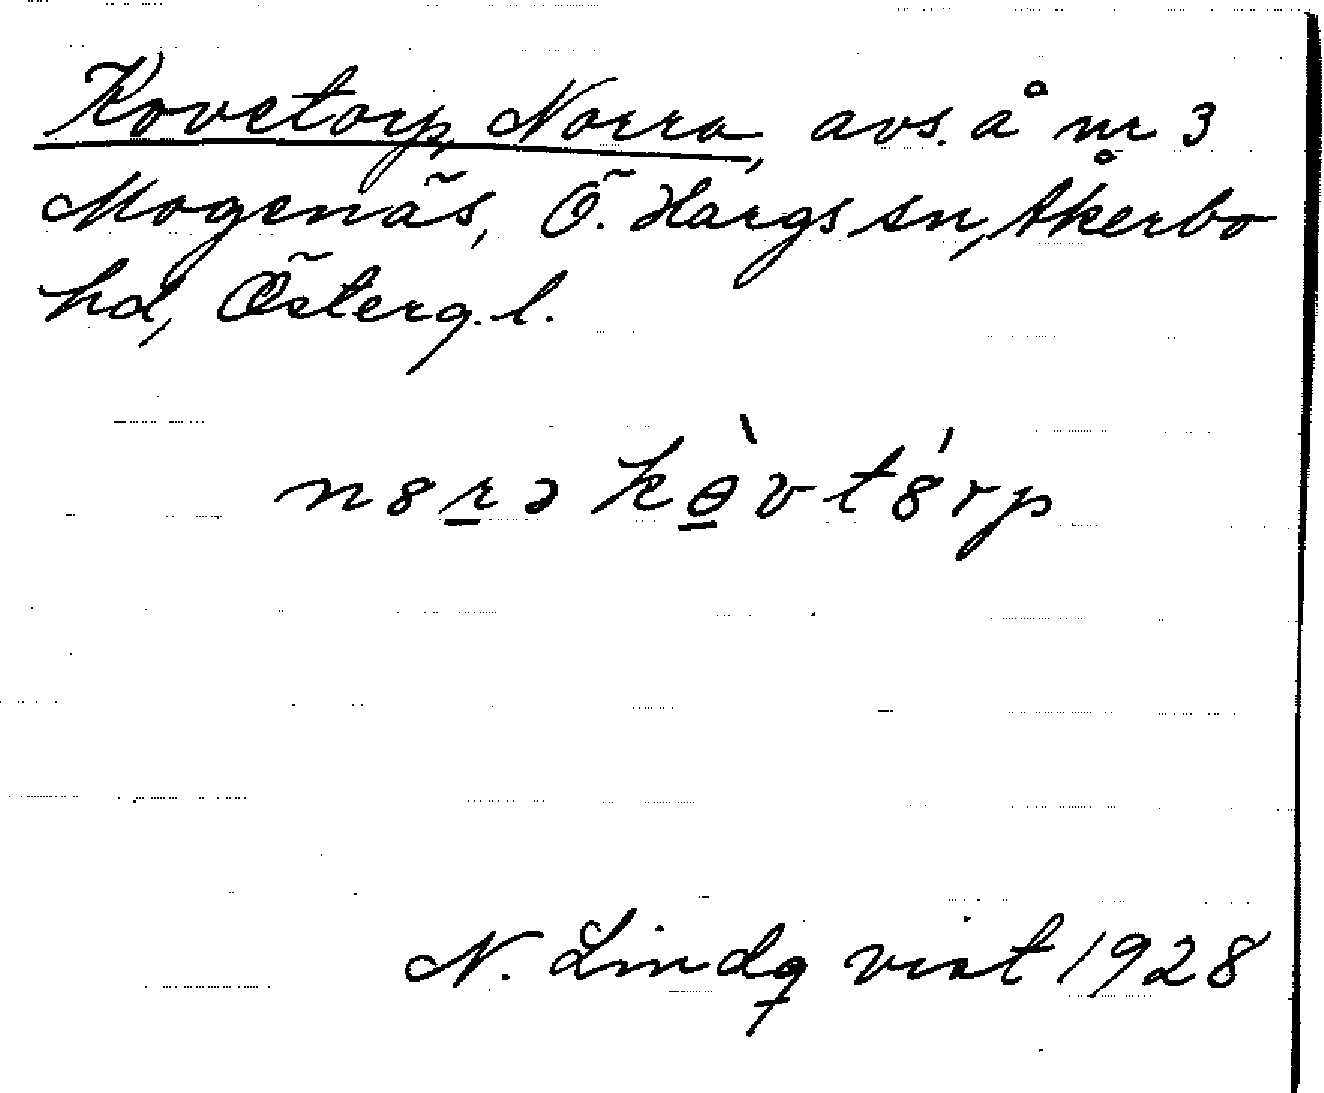 Kovetorp, Norra, avs. å nr 3
Mogenäs, Ö. Hargs sn, Åkerbo
hd, Österg. l.
n8r̲ə kɵ̲̀vt8́rp
N. Lindqvist 1928